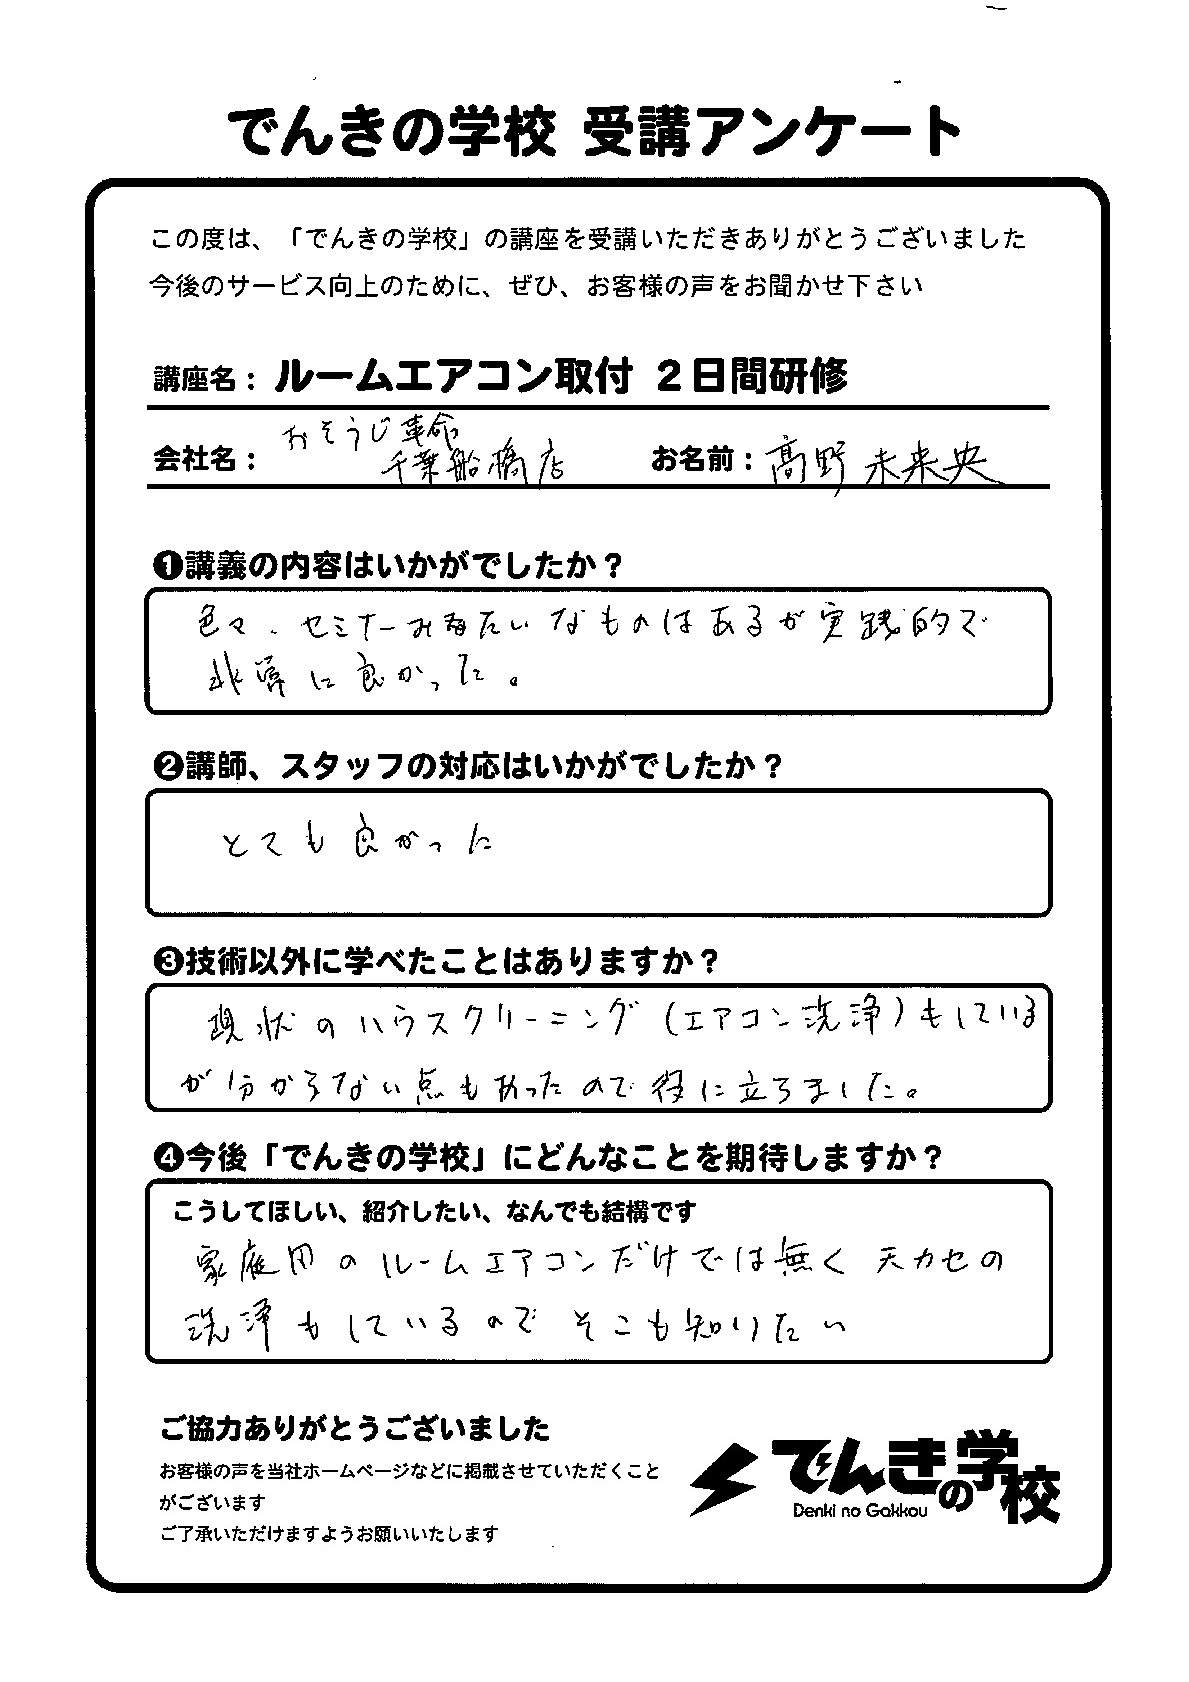 でんきの学校 受講アンケート
この度は、「でんきの学校」の講座を受講いただきありがとうございました
今後のサービス向上のために、ぜひ、お客様の声をお聞かせ下さい
講座名： ルームエアコン取付 ２日間研修
会社名： おそうじ革命
千葉船橋店 お名前： 髙野 未来央
❶講義の内容はいかがでしたか？
色々、セミナーみたいなものはあるが実践的で
非常に良かった。
❷講師、スタッフの対応はいかがでしたか？
とても良かった
❸技術以外に学べたことはありますか？
現状のハウスクリーニング(エアコン洗浄)もしている
が分からない点もあったので役に立ちました。
❹今後「でんきの学校」にどんなことを期待しますか？
こうしてほしい、紹介したい、なんでも結構です
家庭用のルームエアコンだけでは無く天カセの
洗浄もしているのでそこも知りたい
ご協力ありがとうございました
お客様の声を当社ホームページなどに掲載させていただくこと
がございます
ご了承いただけますようお願いいたします
でんきの学校
Denki no Gakkou